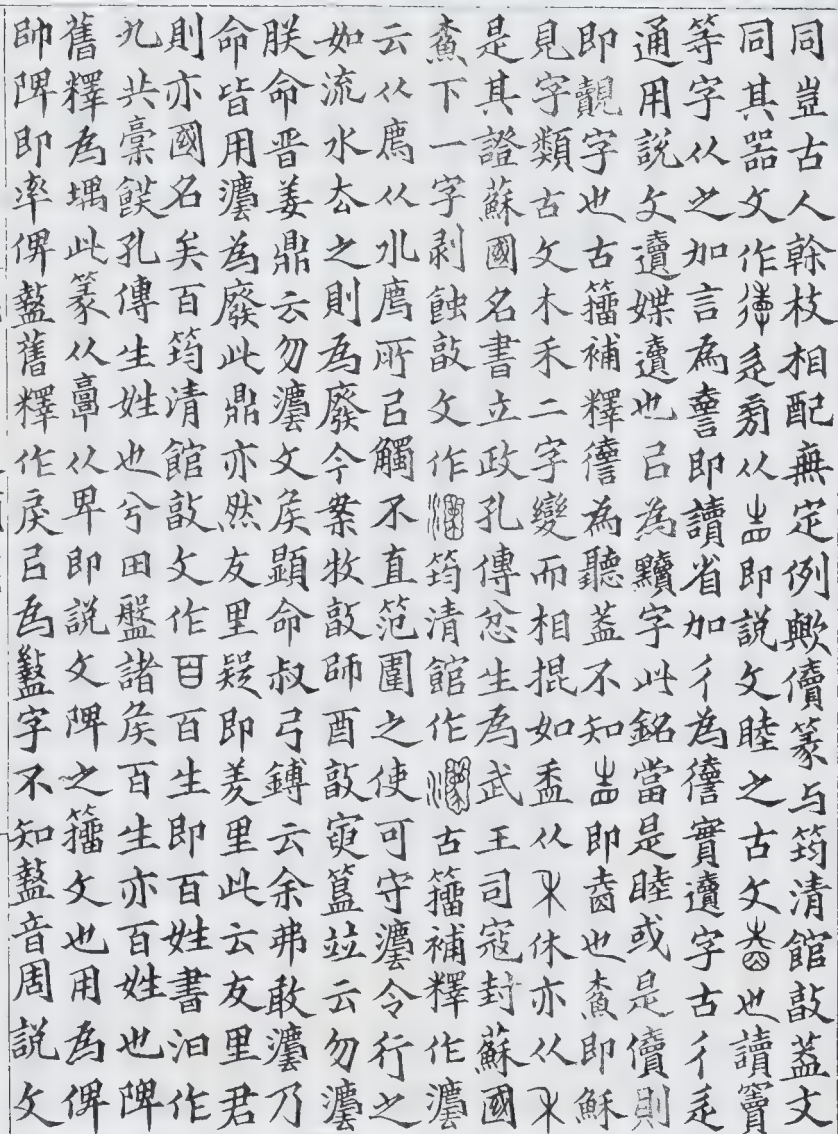 同豈古人榦枝相配無定例歟儥篆与筠清館敦葢文
同其器文作𢔶辵㫄从𡴆即說文睦之古文𡴆也讀竇
等字从之加言爲讟即讀省加彳為儥實遺字古彳辵
通用說文遺媟遺也㠯為黷字此銘當是睦或是儥則
即覿字也古籀補釋𢔶為聽葢不知𡴆即𡴆也穌即穌
見字類古文木禾二字變而相掍如盉从禾休亦从禾
是其證蘇國名書立政孔傳忿生為武王司寇封蘇國
穌下一字剥蝕敦文作筠清館作古籀補釋作灋
云从廌从水廌所㠯觸不直范圍之使可守灋令行之
如流水厺之則為廢今案牧敦師酉敦𡪢簋竝云勿灋
朕命晋姜鼎云勿灋文矦顯命叔弓鎛云余弗敢灋乃
命皆用灋為廢此鼎亦然友里疑即羑里此云友里君
則亦國名矣百筠清館敦文作百百生即百姓書汩作
九共稾飫孔傳生姓也兮田盤諸矦百生亦百姓也陴
舊釋為堣此篆从𩫖从卑即說文陴之籀文也用為俾
帥陴即率俾盩舊釋作戾㠯為盭字不知盩音周說文